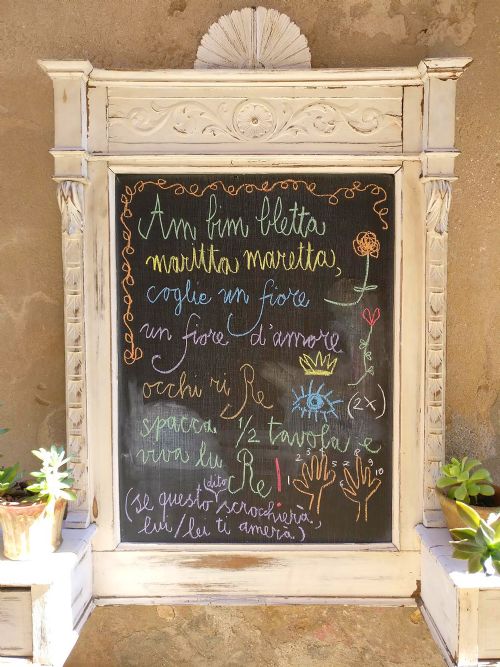 Am bim bletta
maritta maretta,
coglie un fiore
un fiore d'amore
occhi ri Re (2x)
spacca 1/2 tavola e
viva lu Re!
1 2 3 4 5 6 7 8 9 10
(se questo dito scrocchierà,
lui/lei ti amerà)